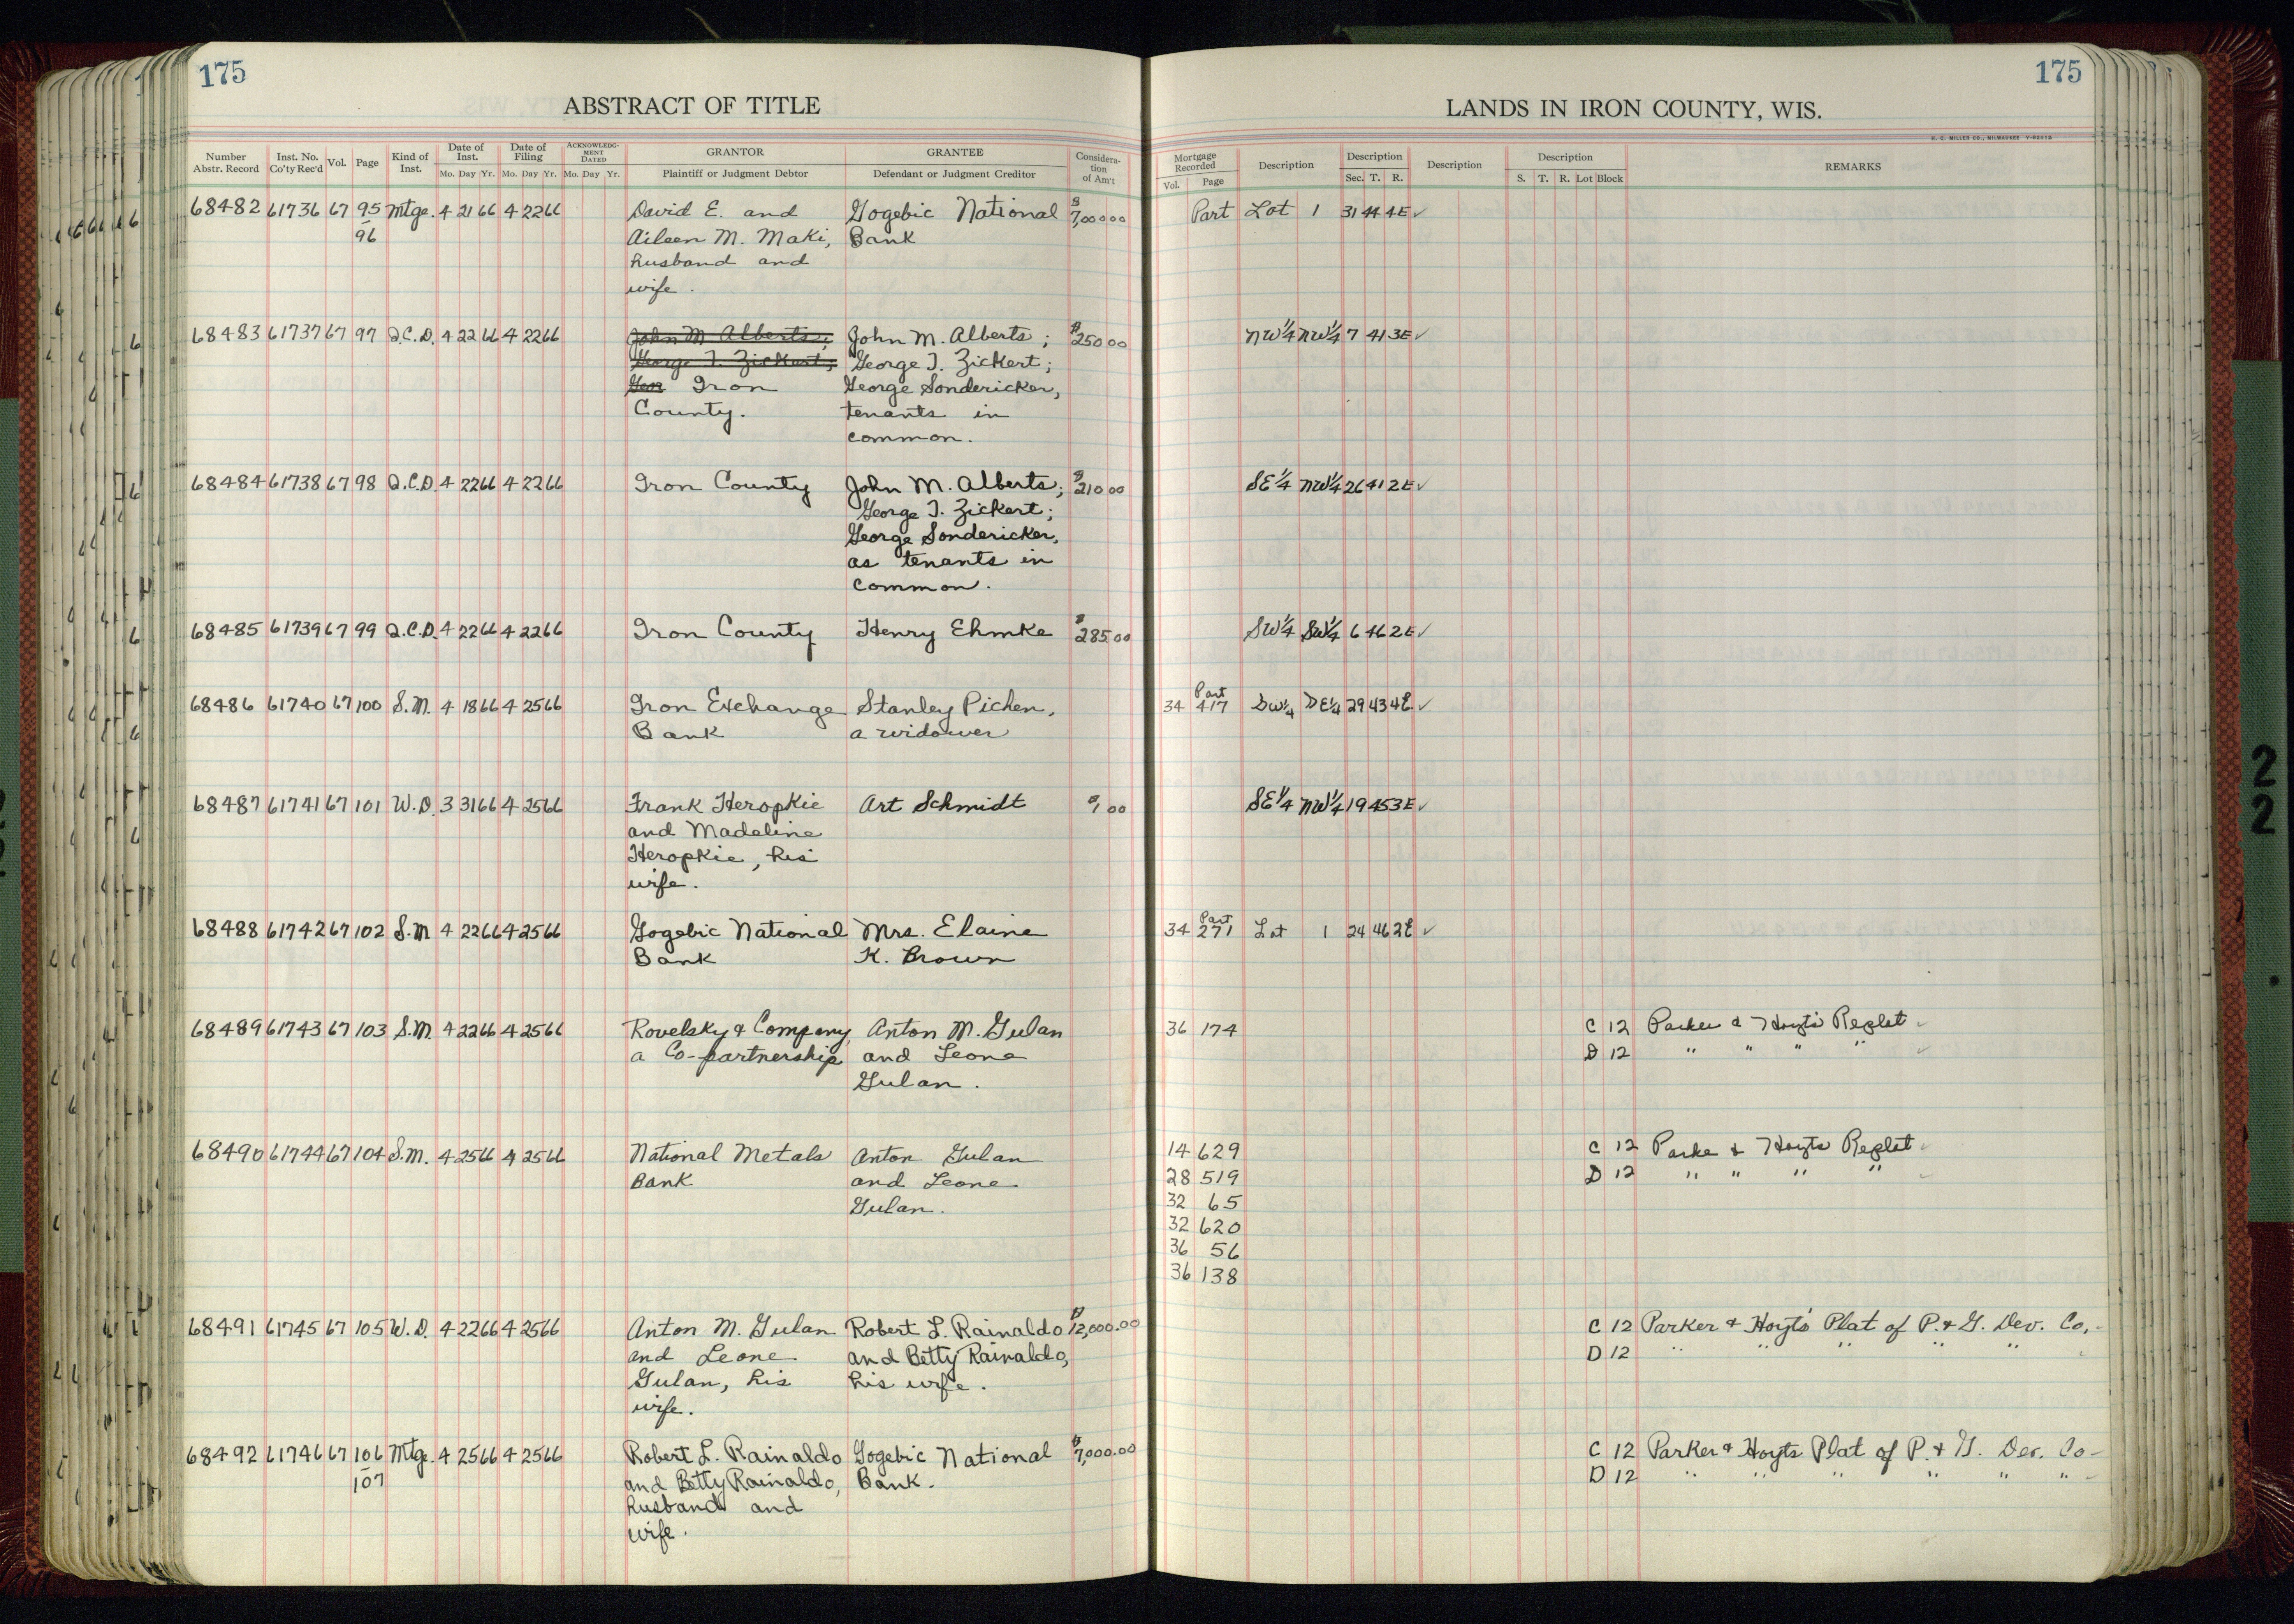 175
175
ABSTRACT OF TITLE
LANDS IN IRON COUNTY, WIS.
Number Abstr. Record Inst. No. Co'ty Rec'd Vol. Page Kind of Inst. Date of Inst. Mo. Day Yr. Date of Filing Mo. Day Yr. ACKNOWLEDG-MENT DATED Mo. Day Yr. GRANTOR Plaintiff or Judgment Debtor GRANTEE Defendant or Judgment Creditor Considera-tion of Am't Mortgage Recorded Vol. Page Description Description Sec. T. R. Description Description S. T. R. Lot Block REMARKS
68482 61736 67 95 Mtge. 4 21 66 4 22 66 David E. and Gogebic National $7,000 00 Part Lot 1 31 44 4E ✓
96 Aileen M. Maki, Bank
husband and
wife.
68483 61737 67 97 Q.C.D. 4 22 66 4 22 66 John M Alberts; John M. Alberts; $250 00 NW¼ NW¼ 7 41 3E ✓
George T. Zickert; George T. Zickert;
Geor Iron George Sondericker,
County. tenants in
common.
68484 61738 67 98 Q.C.D. 4 22 66 4 22 66 Iron County John M. Alberts; $210 00 SE¼ NW¼ 26 41 2E ✓
George T. Zickert;
George Sondericker,
as tenants in
common.
68485 61739 67 99 Q.C.D. 4 22 66 4 22 66 Iron County Henry Ehmke $285.00 SW¼ SW¼ 6 46 2E ✓
68486 61740 67 100 S.M. 4 18 66 4 25 66 Iron Exchange Stanley Pichen, 34 Part 417 SW¼ SE¼ 29 43 4E ✓
Bank a widower
68487 61741 67 101 W.D. 3 31 66 4 25 66 Frank Heropkie Art Schmidt $1 00 SE¼ NW¼ 19 45 3E ✓
and Madeline
Heropkie, his
wife.
68488 61742 67 102 S.M 4 22 66 4 25 66 Gogebic National Mrs. Elaine 34 Part 271 Lot 1 24 46 2E ✓
Bank K. Brown
68489 61743 67 103 S.M. 4 22 66 4 25 66 Rovelsky & Company, Anton M. Gulan 36 174 C 12 Parker & Hoyt's Replat ✓
a Co-partnership and Leone D 12 " " " " ✓
Gulan.
68490 61744 67 104 S.M. 4 25 66 4 25 66 National Metals Anton Gulan 14 629 C 12 Parke & Hoyts Replat ✓
Bank and Leone 28 519 D 12 " " " "
Gulan. 32 65
32 620
36 56
36 138
68491 61745 67 105 W.D. 4 22 66 4 25 66 Anton M. Gulan Robert L. Rainaldo $12,000.00 C 12 Parker & Hoyt's Plat of P. & G. Dev. Co.
and Leone and Betty Rainaldo, D 12 " " " " "
Gulan, his his wife.
wife.
68492 61746 67 106 Mtg. 4 25 66 4 25 66 Robert L. Rainaldo Gogebic National $7,000.00 C 12 Parker & Hoyts Plat of P. & G. Dev. Co
107 and Betty Rainaldo, Bank. D 12 " " " " " "
husband and
wife.